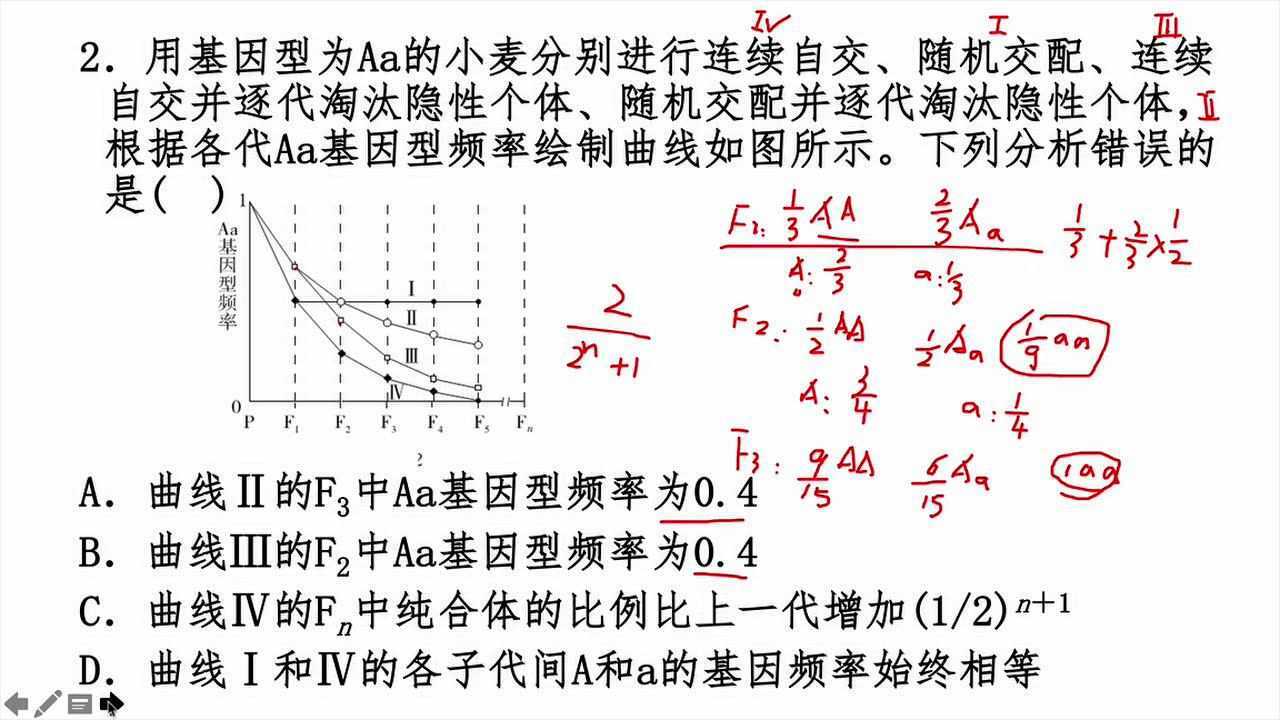 Ⅳ Ⅰ Ⅲ
2. 用基因型为Aa的小麦分别进行连续自交、随机交配、连续
自交并逐代淘汰隐性个体、随机交配并逐代淘汰隐性个体,Ⅱ
根据各代Aa基因型频率绘制曲线如图所示。下列分析错误的
是( )
1
Aa基因型频率
Ⅰ
Ⅱ
Ⅲ
Ⅳ
0
P F1 F2 F3 F4 F5 Fn
2
2/(2^n+1)
F1: 1/3 AA 2/3 Aa 1/3+2/3×1/2
A: 2/3 a: 1/3
F2: 1/2 AA 1/2 Aa 1/9 aa
A: 3/4 a: 1/4
F3: 9/15 AA 6/15 Aa 1aa
A. 曲线Ⅱ的F3中Aa基因型频率为0.4
B. 曲线Ⅲ的F2中Aa基因型频率为0.4
C. 曲线Ⅳ的Fn中纯合体的比例比上一代增加(1/2)^n+1
D. 曲线Ⅰ和Ⅳ的各子代间A和a的基因频率始终相等